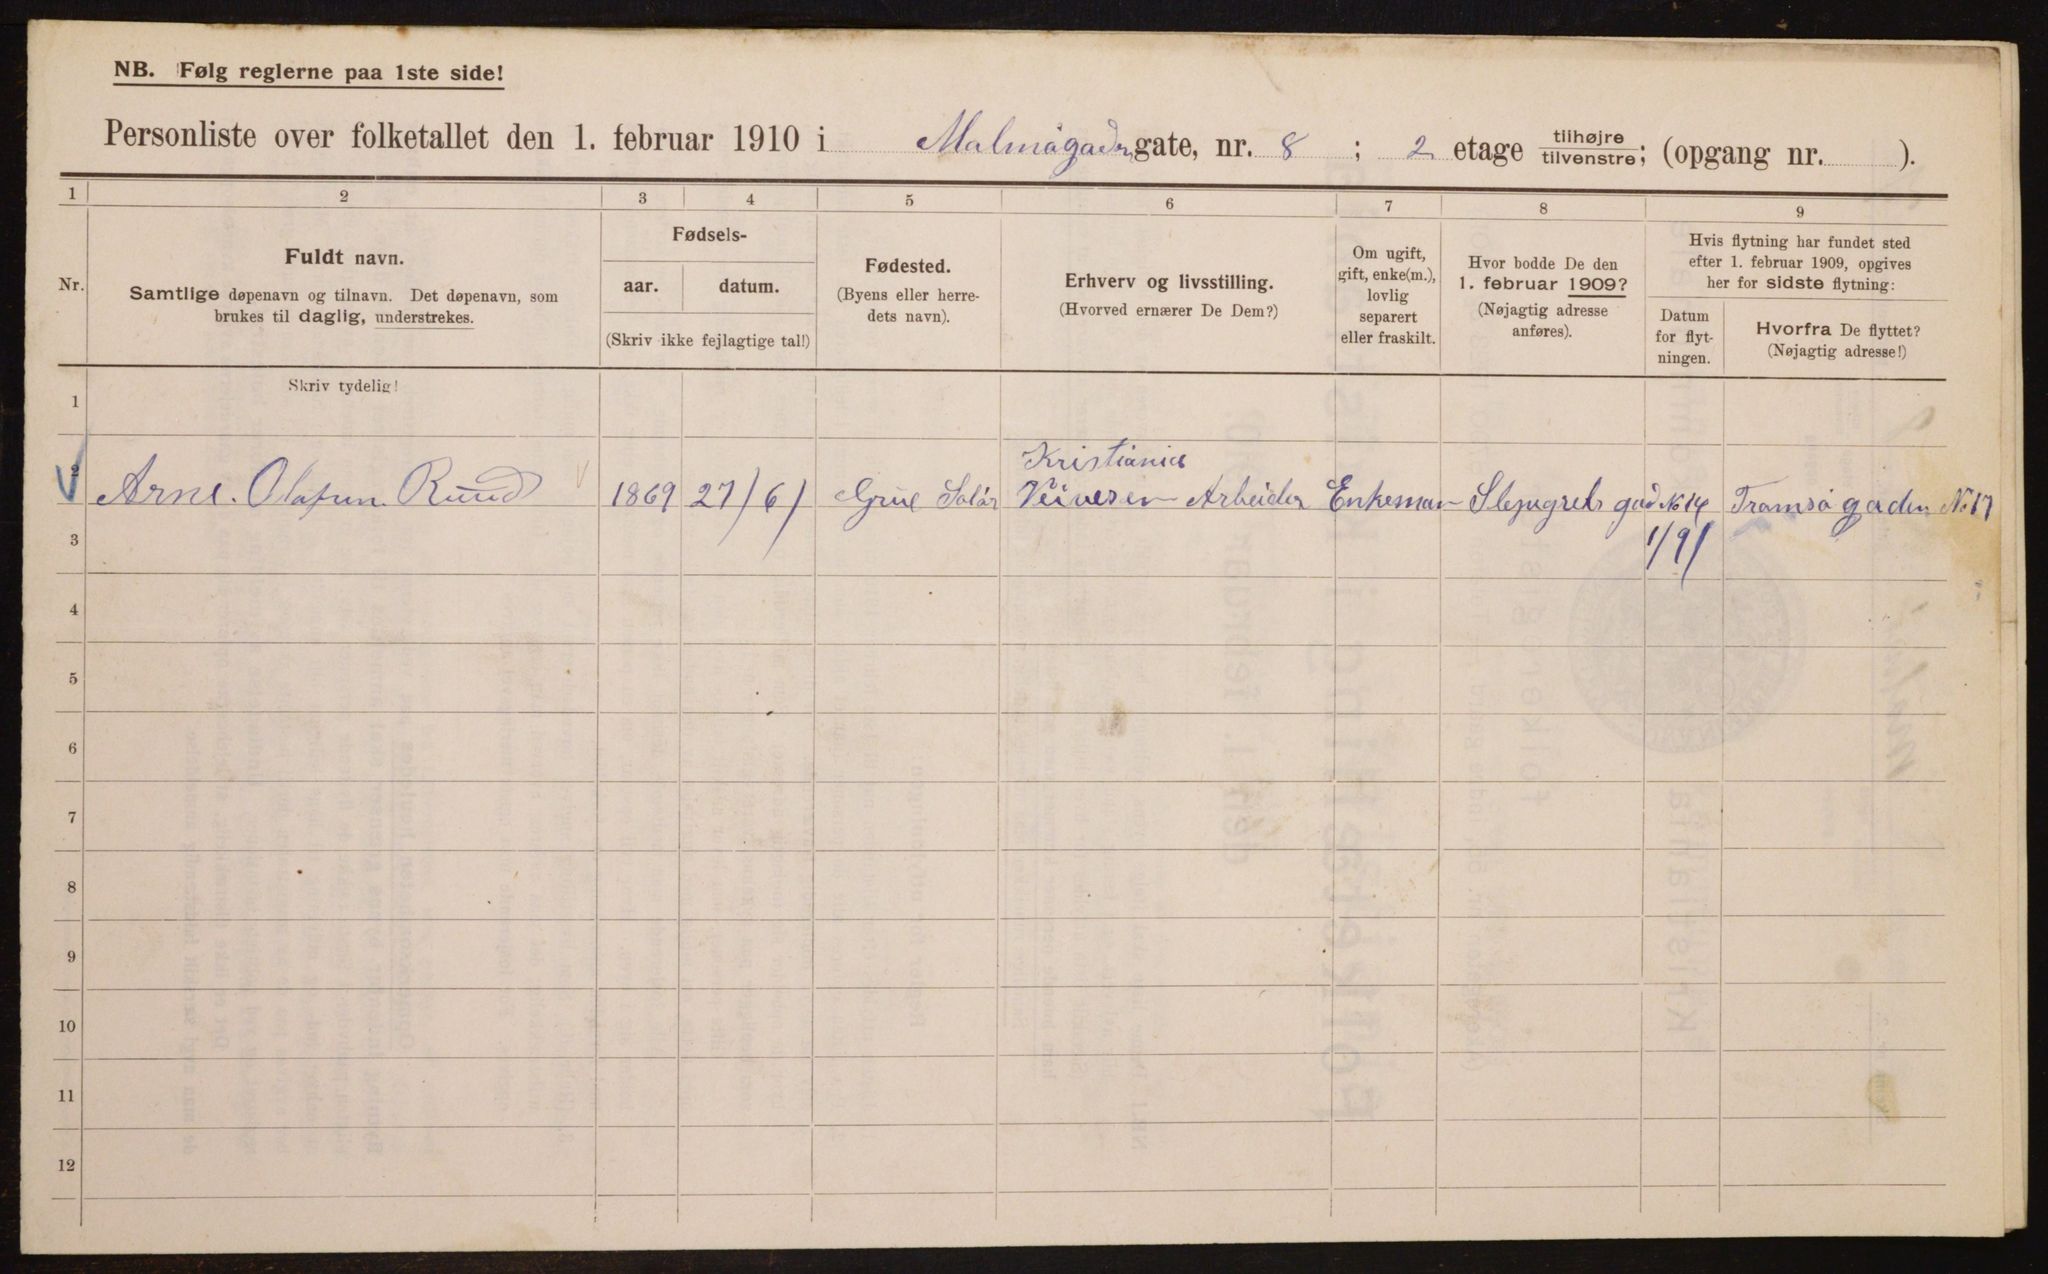 NB. Følg reglerne paa 1ste side!
Personliste over folketallet den 1. februar 1910 i Malmøgaden gate, nr. 8 ; 2 etage tilhøjre/tilvenstre; (opgang nr. ).
1 2 3 4 5 6 7 8 9
Nr.
Fuldt navn.
Samtlige døpenavn og tilnavn. Det døpenavn, som
brukes til daglig, understrekes.
Fødsels-
aar. datum.
(Skriv ikke fejlagtige tal!)
Fødested.
(Byens eller herre-
dets navn).
Erhverv og livsstilling.
(Hvorved ernærer De Dem?)
Om ugift,
gift, enke(m.),
lovlig
separert
eller fraskilt.
Hvor bodde De den
1. februar 1909?
(Nøjagtig adresse
anføres).
Hvis flytning har fundet sted
efter 1. februar 1909, opgives
her for sidste flytning:
Datum
for flyt-
ningen.
Hvorfra De flyttet?
(Nøjagtig adresse!)
Skriv tydelig!
1
Kristiania
2 Arne. Olafsen. Ruud 1869 27/6/ Grue Solør Veivesen Arbeider Enkeman gad No 14 Tromsøgaden No 17
3 1/9/
4
5
6
7
8
9
10
11
12